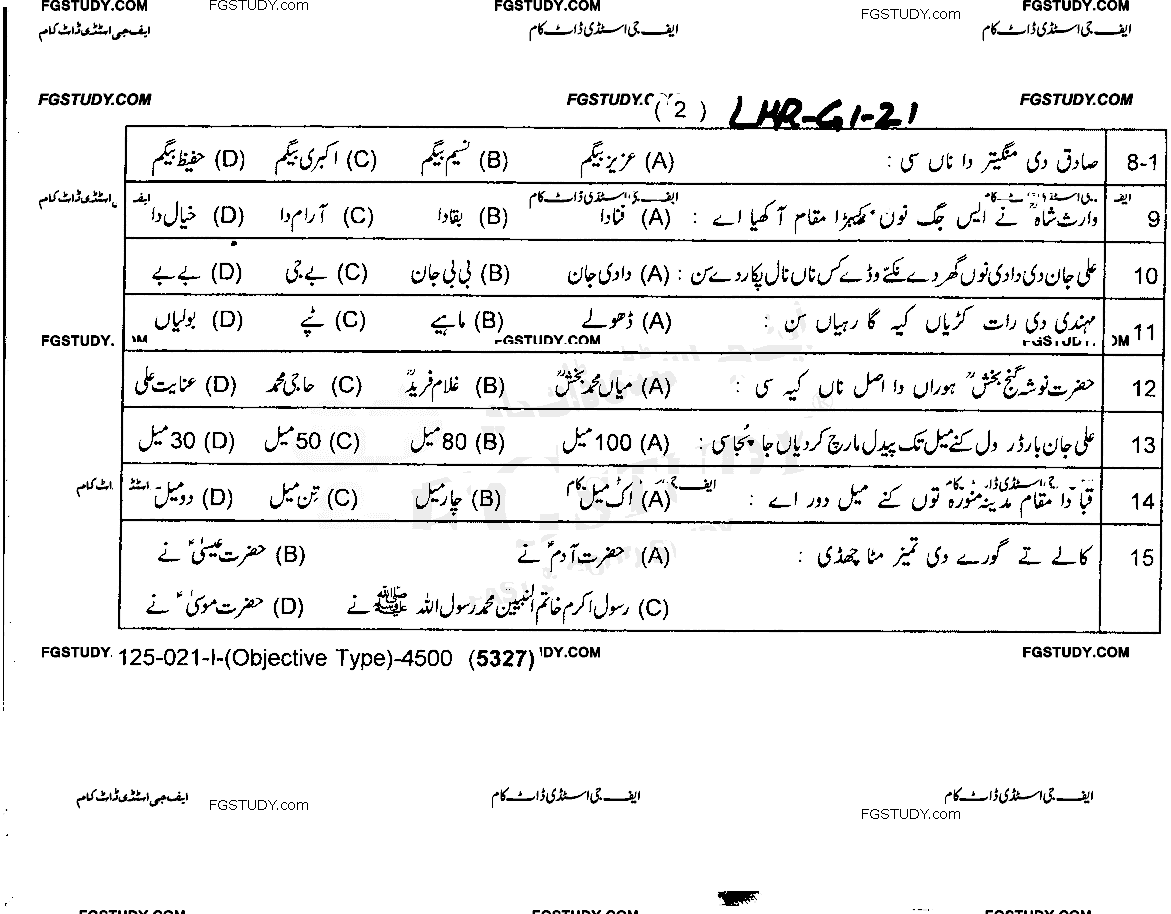 FGSTUDY.COM FGSTUDY.com FGSTUDY.COM FGSTUDY.com FGSTUDY.COM
ایف جی اسٹڈی ڈاٹ کام ایف جی اسٹڈی ڈاٹ کام ایف جی اسٹڈی ڈاٹ کام
FGSTUDY.COM FGSTUDY.C ( 2 ) LHR-G1-21 FGSTUDY.COM
8-1 صادق دی منگیتر دا ناں سی : (A) عزیز بیگم (B) نسیم بیگم (C) اکبری بیگم (D) حفیظ بیگم
9 وارث شاہؒ نے ایس جگ نوں کیہڑا مقام آکھیا اے : (A) فنا دا (B) بقا دا (C) آرام دا (D) خیال دا
10 علی جان دی دادی نوں گھر دے نکے وڈے کس ناں نال پکار دے سن : (A) دادی جان (B) بی بی جان (C) بے جی (D) بے بے
11 مہندی دی رات کڑیاں کیہ گا رہیاں سن : (A) ڈھولے (B) ماہیے (C) ٹپے (D) بولیاں
FGSTUDY. FGSTUDY.COM FGSTUDY.
12 حضرت نوشہ گنج بخشؒ ہوراں دا اصل ناں کیہ سی : (A) میاں محمد بخشؒ (B) غلام فریدؒ (C) حاجی محمد (D) عنایت علی
13 علی جان بارڈر ول کنے میل تک پیدل مارچ کردیاں جا پہنچا سی : (A) 100 میل (B) 80 میل (C) 50 میل (D) 30 میل
14 قبا دا مقام مدینہ منورہ توں کنے میل دور اے : (A) اک میل (B) چار میل (C) تن میل (D) دو میل
15 کالے تے گورے دی تمیز مٹا چھڈی : (A) حضرت آدمؑ نے (B) حضرت عیسیٰؑ نے
(C) رسول اکرم خاتم النبیین محمد رسول اللہ ﷺ نے (D) حضرت موسیٰؑ نے
FGSTUDY. 125-021-I-(Objective Type)-4500 (5327) DY.COM FGSTUDY.COM
ایف جی اسٹڈی ڈاٹ کام FGSTUDY.com ایف جی اسٹڈی ڈاٹ کام ایف جی اسٹڈی ڈاٹ کام
FGSTUDY.com
FGSTUDY.COM FGSTUDY.COM FGSTUDY.COM